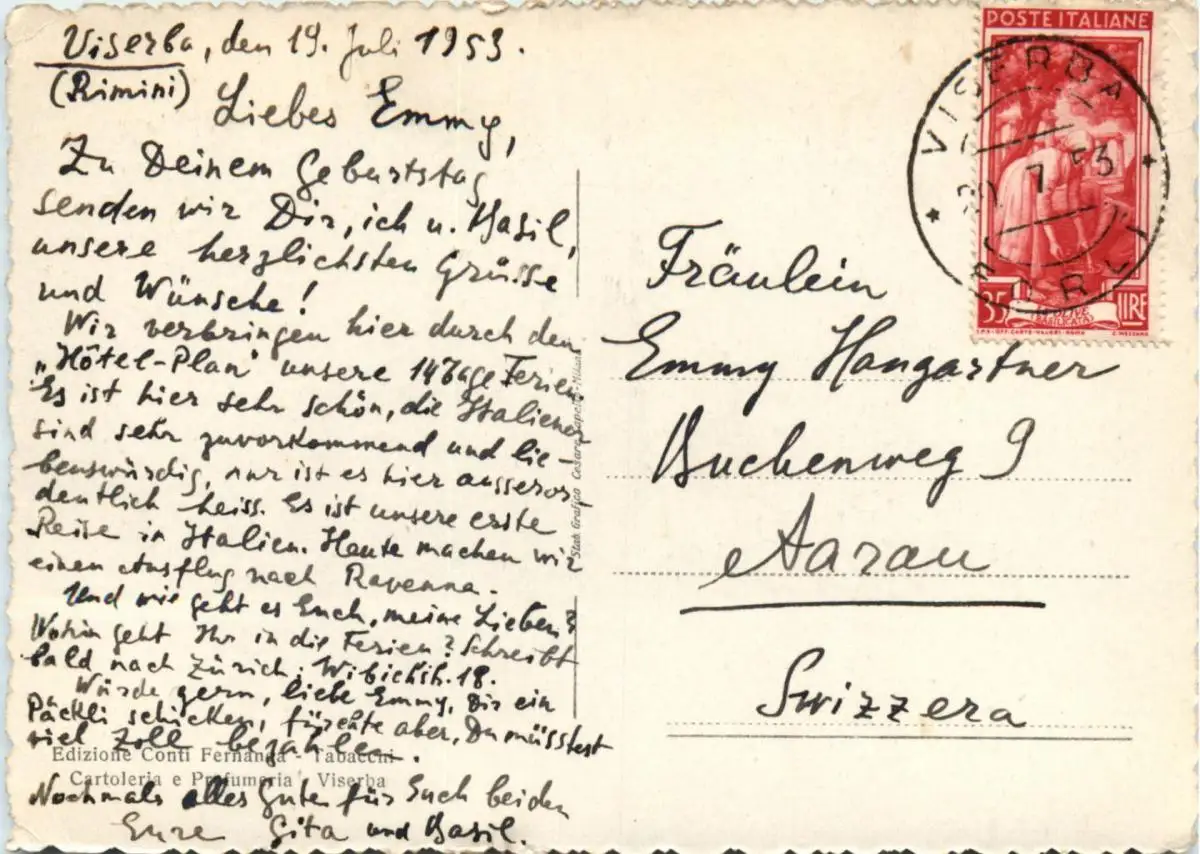 Viserba, den 19. Juli 1953.
(Rimini)
Liebes Emmy,
Zu Deinem Geburtstag
senden wir Dir, ich u. Basil,
unsere herzlichsten Grüsse
und Wünsche!
Wir verbringen hier durch den
„Hôtel-Plan" unsere 14 Tage Ferien.
Es ist hier sehr schön, die Italiener
sind sehr zuvorkommend und lie-
benswürdig, nur ist es hier ausseror-
dentlich heiss. Es ist unsere erste
Reise in Italien. Heute machen wir
einen Ausflug nach Ravenna.
Und wie geht es Euch, meine Lieben?
Wohin geht Ihr in die Ferien? Schreibt
bald nach Zürich, Wibichstr. 18.
Würde gern, liebe Emmy, Dir ein
Päckli schicken, fürchte aber, Du müsstest
viel Zoll bezahlen.
Nochmals alles Gute für Euch beiden
Eure Gita und Basil.
Edizione Conti Fernanda - Tabacchi
Cartoleria e Profumeria - Viserba
Stab. Grafico Cesare Capello - Milano
POSTE ITALIANE
35 LIRE
BASILICATA
I.P.S.-OFF. CARTE-VALORI-ROMA
C. MEZZANA
VISERBA
20 7 53
FORLI
Fräulein
Emmy Hangartner
Buchenweg 9
Aarau
Swizzera